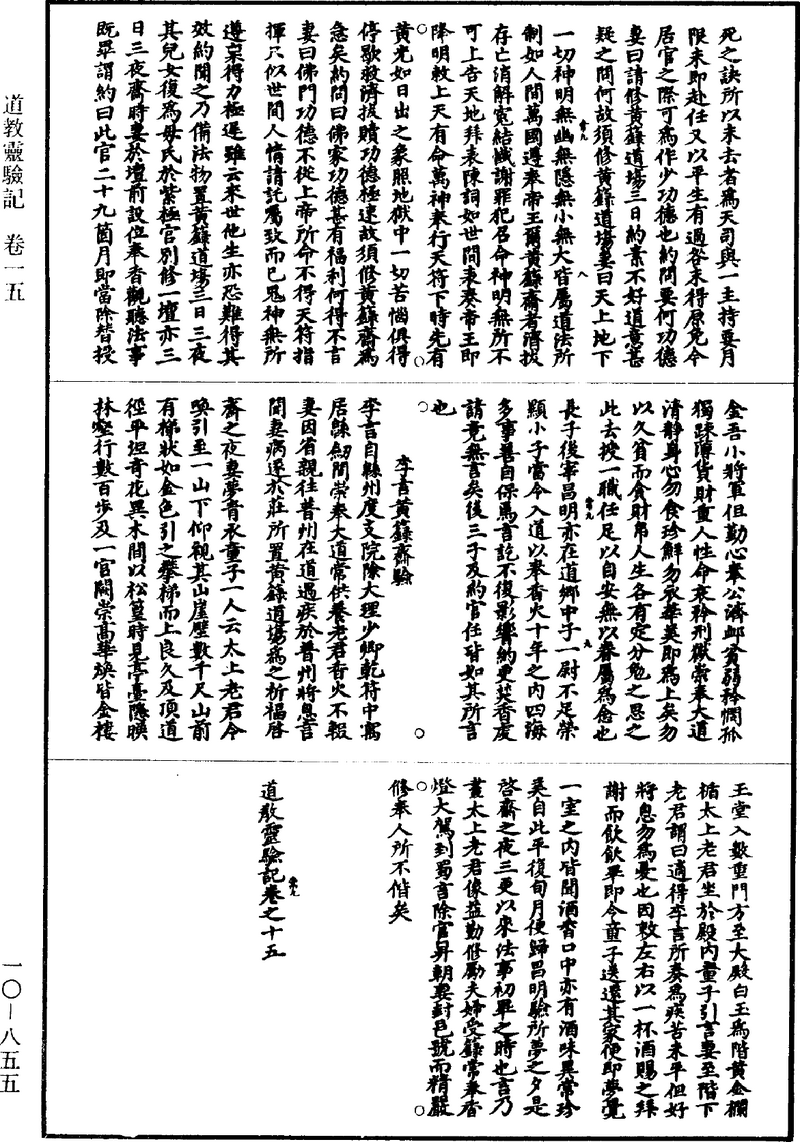 道教靈驗記　卷一五
一〇—八五五
死之訣所以來去者為天司與一主持要月
限未即赴任又以平生有過咎未得原免今
居官之際可為作少功德也約問要何功德
妻曰請修黃籙道場三日約素不好道意甚
疑之問何故須修黃籙道場妻曰天上地下
一切神明無幽無隱無小無大皆屬道法所
制如人間萬國遵奉帝王爾黃籙齋者濟拔
存亡消解冤結懺謝罪犯召命神明無所不
可上告天地拜表陳詞如世間表奏帝王即
降明敕上天有命萬神奉行天符下時先有
黃光如日出之象照地獄中一切苦惱俱得
停歇救濟拔贖功德極速故須修黃籙齋為
急矣約問曰佛家功德甚有福利何得不言
妻曰佛門功德不從上帝所命不得天符指
揮只似世間人情請託屬致而已鬼神無所
遵稟得力極遲雖云來世他生亦恐難得其
效約聞之乃備法物置黃籙道場三日三夜
其兒女復為母氏於紫極宮別修一壇亦三
日三夜齋時妻於壇前設位奉香觀聽法事
既畢謂約曰此官二十九箇月即當除替授
金吾小將軍但勤心奉公濟卹貧弱矜憫孤
獨疎薄貨財重人性命哀矜刑獄崇奉大道
清靜身心勿食珍鮮勿衣華美即為上矣勿
以久貧而貪財帛人生各有定分勉之思之
此去授一職任足以自安無以眷屬為念也
長子後宰昌明亦在道鄉中子一尉不足榮
顯小子當今入道以奉香火十年之內四海
多事善自保焉言訖不復影響約更焚香虔
請竟無言矣後三子及約官任皆如其所言
也
李言黃籙齋驗
李言自縣州度支院除大理少卿乾符中寓
居縣劒間崇奉大道常供養老君香火不輟
妻因省親往普州在道遇疾於普州將息言
聞妻病遂於莊所置黃籙道場為之祈福啓
齋之夜妻夢青衣童子一人云太上老君令
喚引至一山下仰觀其山崖壁數千尺山前
有梯狀如金色引之攀梯而上良久及頂道
徑平坦奇花異木間以松篁時見亭臺隱映
林壑行數百步及一宮闕崇高華煥皆金樓
玉堂入數重門方至大殿白玉為階黃金欄
楯太上老君坐於殿內童子引言妻至階下
老君謂曰適得李言所奏為疾苦未平但好
將息勿為憂也因敕左右以一杯酒賜之拜
謝而飲飲畢即令童子送還其家便即夢覺
一室之內皆聞酒香口中亦有酒味異常珍
美自此平復旬月便歸昌明驗所夢之夕是
啓齋之夜三更以來法事初畢之時也言乃
畫太上老君像益勤修勵夫婦受籙常奉香
燈大駕到蜀言除官昇朝妻封邑號而精嚴
修奉人所不偕矣
道教靈驗記卷之十五